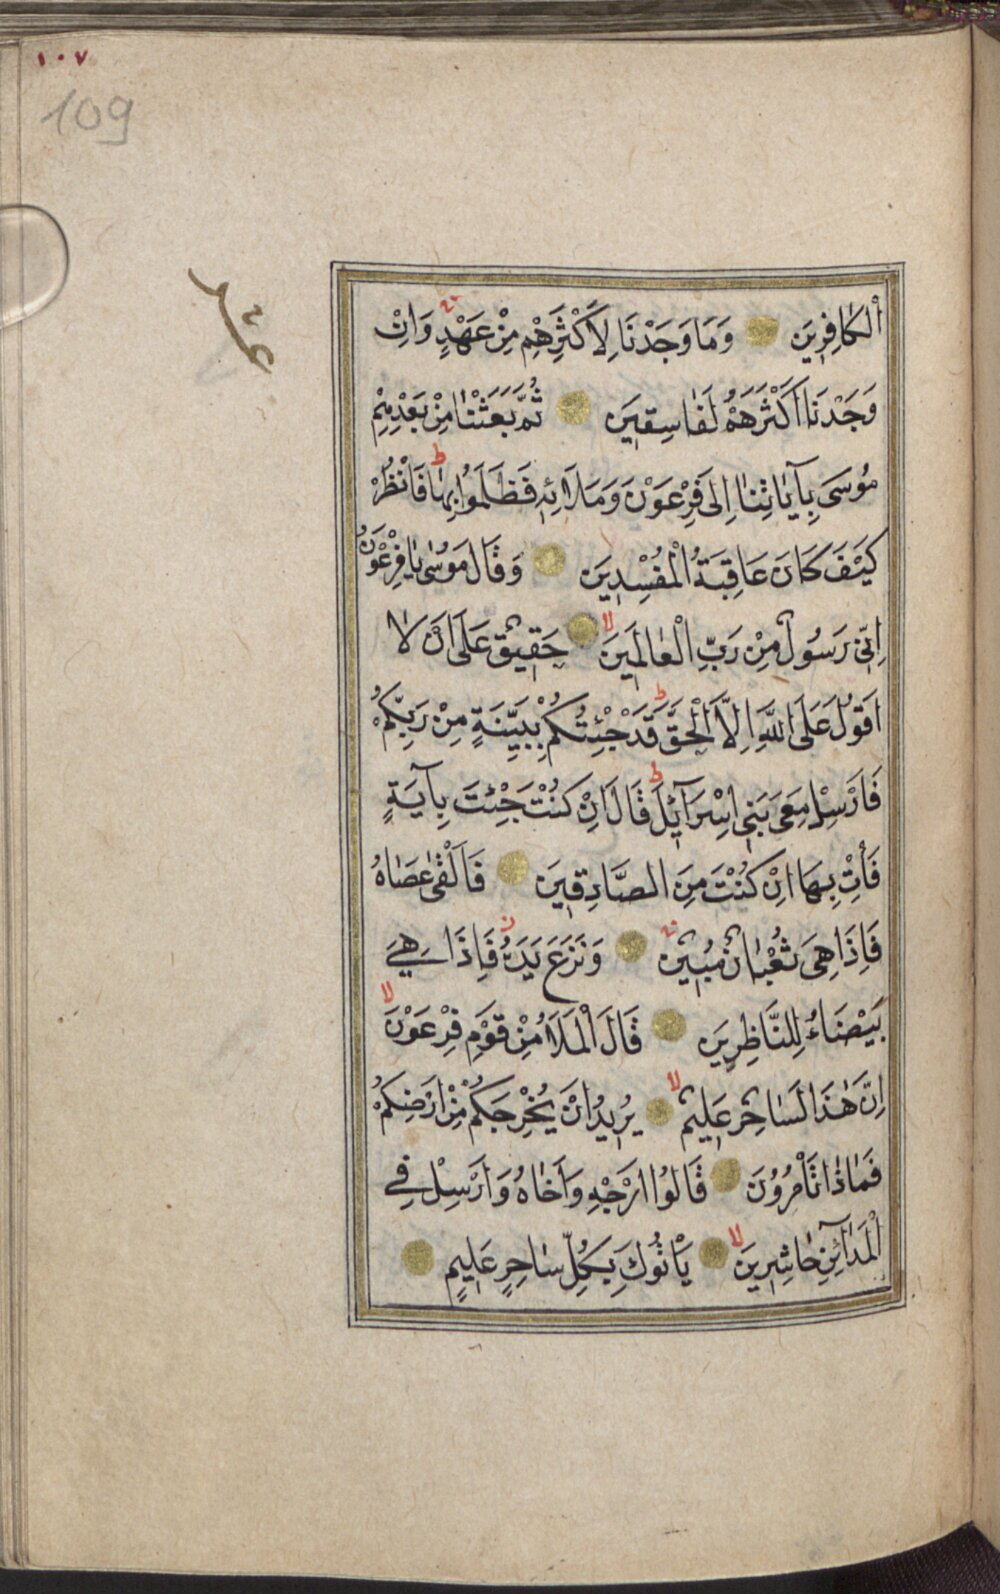 ١٠٧
109
عشر
اَلْكَافِرِينَ وَمَا وَجَدْنَا لِاَكْثَرِهِمْ مِنْ عَهْدٍ وَاِنْ
وَجَدْنَا اَكْثَرَهُمْ لَفَاسِقِينَ ثُمَّ بَعَثْنَا مِنْ بَعْدِهِمْ
مُوسَى بِآيَاتِنَا اِلَى فِرْعَوْنَ وَمَلَائِهِ فَظَلَمُوا بِهَا فَانْظُرْ
كَيْفَ كَانَ عَاقِبَةُ الْمُفْسِدِينَ وَقَالَ مُوسَى يَا فِرْعَوْنُ
اِنِّي رَسُولٌ مِنْ رَبِّ الْعَالَمِينَ حَقِيقٌ عَلَى اَنْ لَا
اَقُولَ عَلَى اللَّهِ اِلَّا الْحَقَّ قَدْ جِئْتُكُمْ بِبَيِّنَةٍ مِنْ رَبِّكُمْ
فَاَرْسِلْ مَعِيَ بَنِي اِسْرَآئِلَ قَالَ اِنْ كُنْتَ جِئْتَ بِآيَةٍ
فَأْتِ بِهَا اِنْ كُنْتَ مِنَ الصَّادِقِينَ فَاَلْقَى عَصَاهُ
فَاِذَا هِيَ ثُعْبَانٌ مُبِينٌ وَنَزَعَ يَدَهُ فَاِذَا هِيَ
بَيْضَاءُ لِلنَّاظِرِينَ قَالَ الْمَلَأُ مِنْ قَوْمِ فِرْعَوْنَ
اِنَّ هَذَا لَسَاحِرٌ عَلِيمٌ يُرِيدُ اَنْ يُخْرِجَكُمْ مِنْ اَرْضِكُمْ
فَمَاذَا تَأْمُرُونَ قَالُوا اَرْجِهْ وَاَخَاهُ وَاَرْسِلْ فِي
الْمَدَآئِنِ حَاشِرِينَ يَأْتُوكَ بِكُلِّ سَاحِرٍ عَلِيمٍ